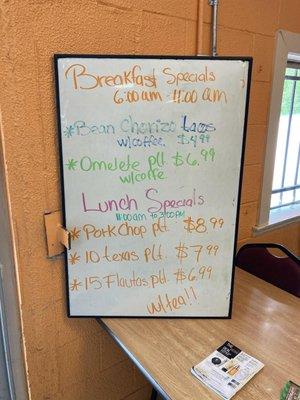 Breakfast Specials
6:00am - 11:00am
* Bean Chorizo Tacos
w/coffee. $4.99
* Omelete plt. $6.99
w/coffe
Lunch Specials
11:00AM to 3:00PM
* Pork Chop plt. $8.99
* 10 texas plt. $7.99
* 15 Flautas plt. $6.99
w/tea!!